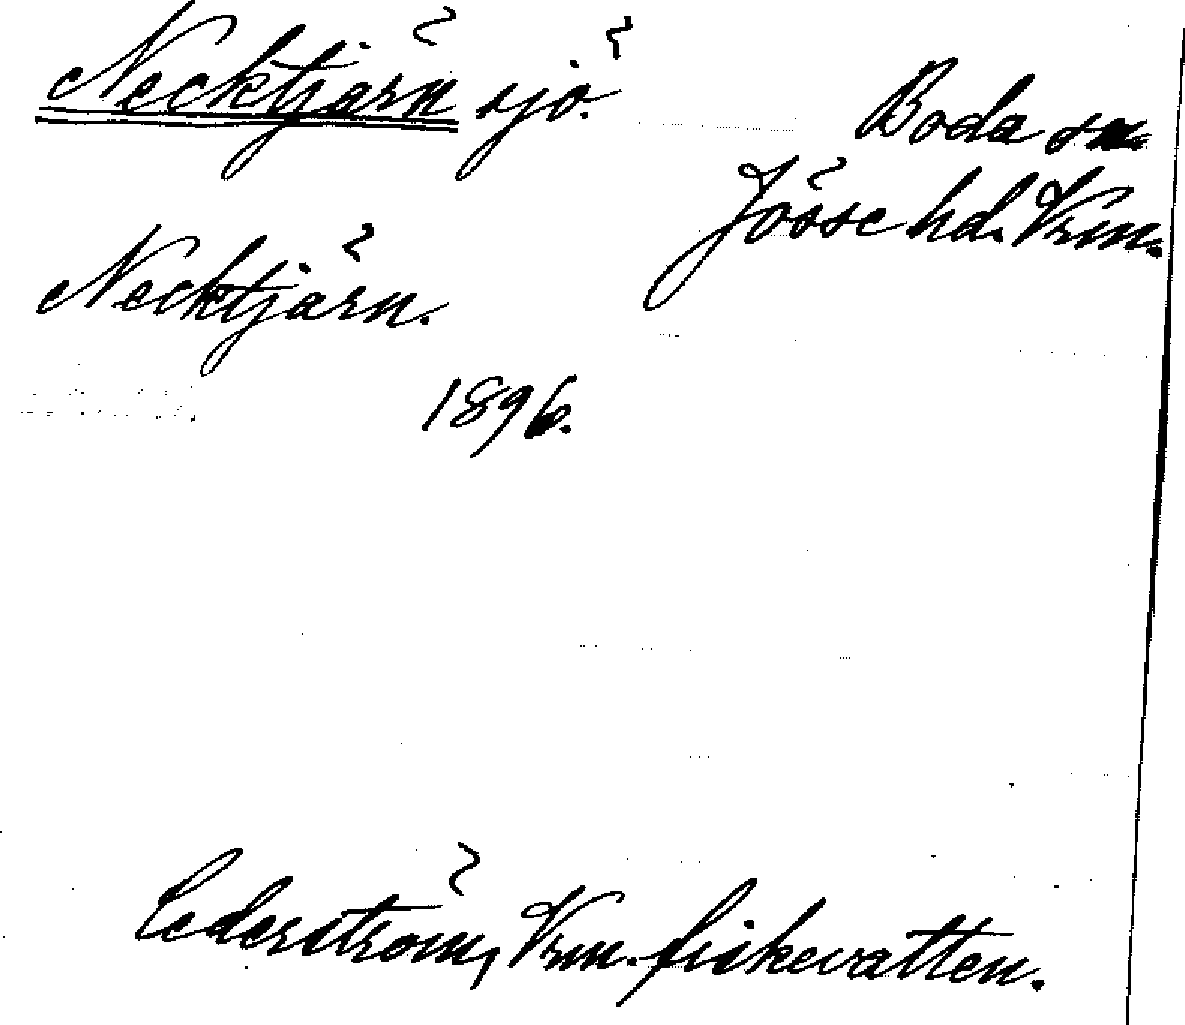 Necktjärn sjö.
Boda sn
Jösse hd. Vrm.
Necktjärn.
1896.
Cederström, Vrm. fiskevatten.